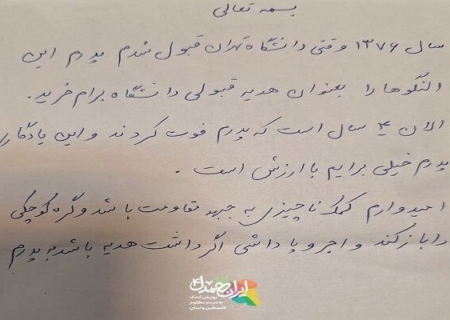 بسمه تعالی
سال ۱۳۷۶ وقتی دانشگاه تهران قبول شدم پدرم این
النگوها را بعنوان هدیه قبولی دانشگاه برام خرید.
الان ۴ سال است که پدرم فوت کردند و این یادگار
پدرم خیلی برایم با ارزش است.
امیدوارم کمک ناچیزی به جبهه مقاومت باشد و گره کوچکی
را باز کند و اجر و پاداشی اگر داشت هدیه باشد به پدرم
ایران همدل
پویش کمک
به مردم مظلوم
فلسطین و لبنان